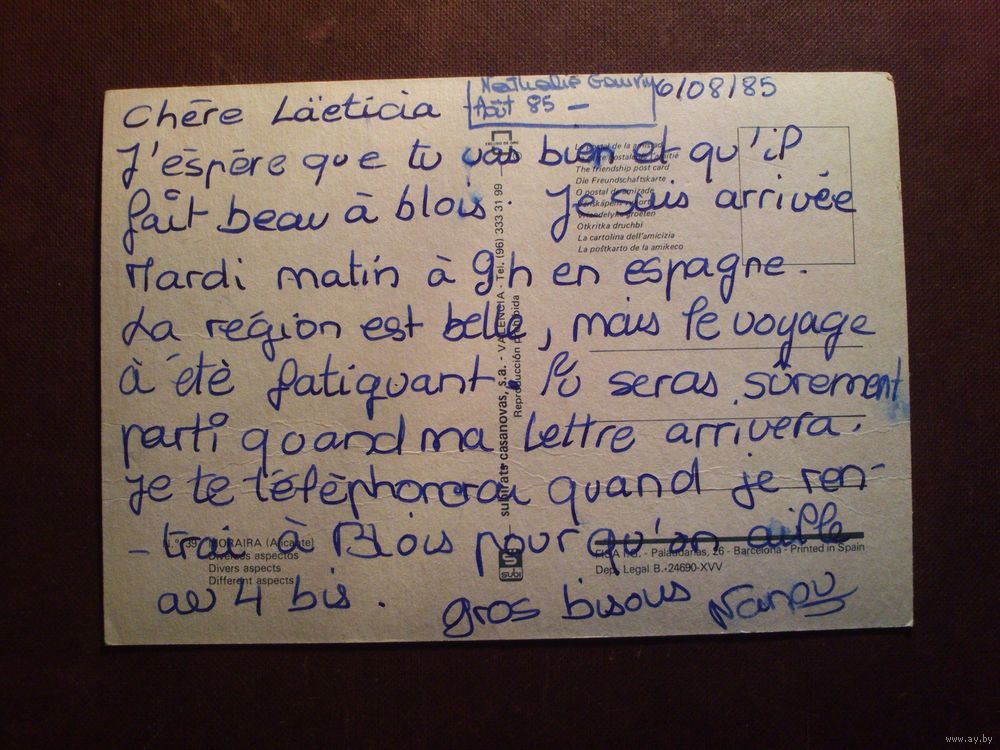 Nathalie
Août 85 –
6/08/85
Chère Läeticia
J'éspère que tu vas bien et qu'il
fait beau à blois. Je suis arrivée
Mardi matin à 9h en espagne.
La région est belle, mais le voyage
à été fatiquant. Tu seras sûrement
parti quand ma lettre arrivera.
Je te téléphonerai quand je ren-
- trai à Blois pour qu'on aille
au 4 bis.
gros bisous
La postal de la amistad
postale de l'amitié
The friendship post card
Die Freundschaftskarte
O postal de amizade
Vriendelyke groeten
Otkritka druchbi
La cartolina dell'amicizia
La poŝtkarto de la amikeco
subirats casanovas, s.a. - VALENCIA - Tel. (96) 333 31 99
Reproducción prohibida
subi
N.º 39 MORAIRA (Alicante)
Diversos aspectos
Divers aspects
Different aspects
FISA I.G. - Palaudarias, 26 - Barcelona - Printed in Spain
Dep. Legal B.-24690-XVV
www.ay.by